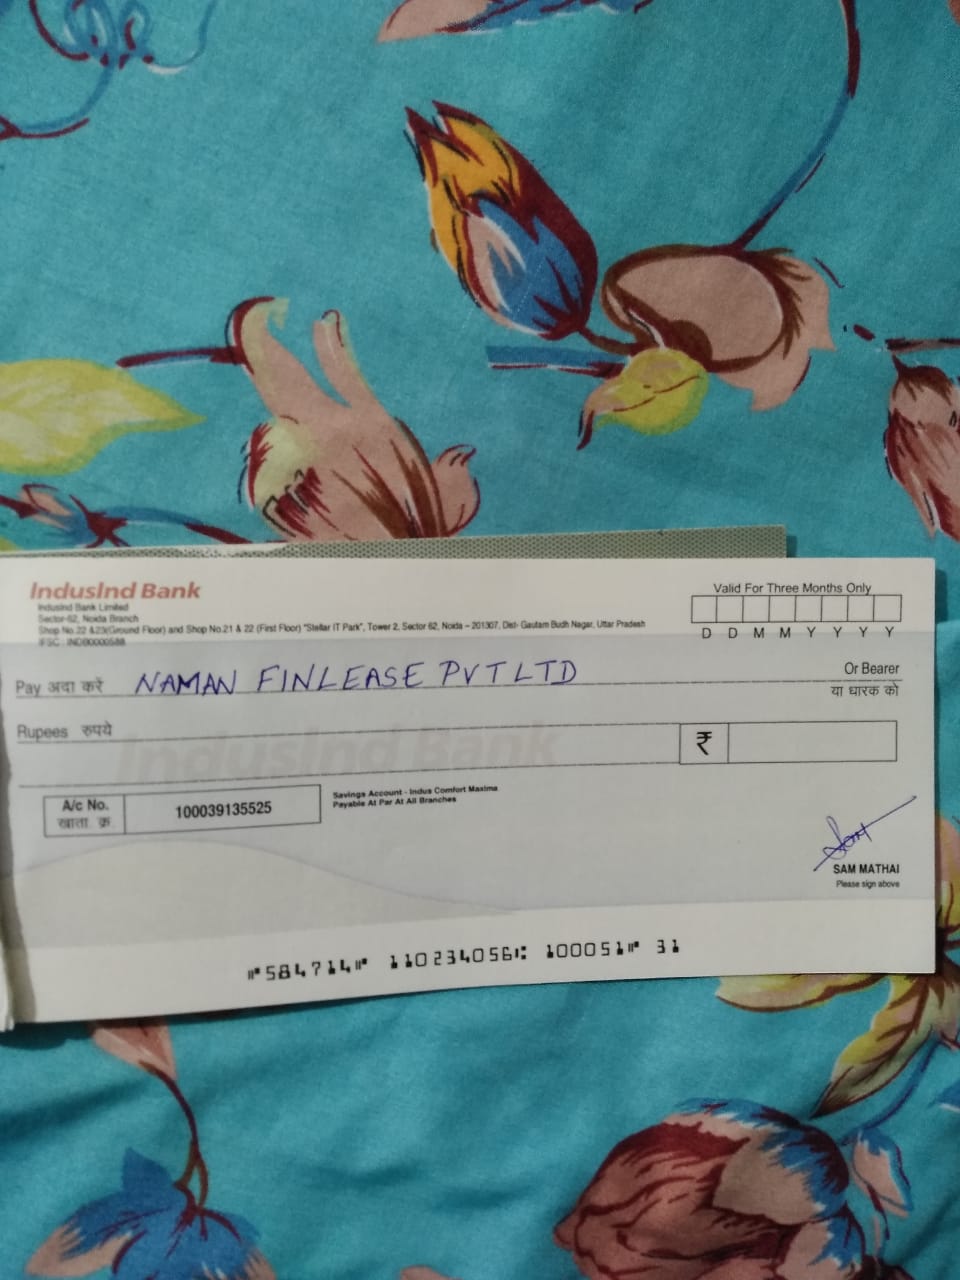 IndusInd Bank
IndusInd Bank Limited
Sector-62, Noida Branch
Shop No.22 &23(Ground Floor) and Shop No.21 & 22 (First Floor) "Stellar IT Park", Tower 2, Sector 62, Noida – 201307, Dist- Gautam Budh Nagar, Uttar Pradesh
IFSC : INDB0000588
Valid For Three Months Only
D D M M Y Y Y Y
Pay अदा करें NAMAN FINLEASE PVT LTD
Or Bearer
या धारक को
Rupees रुपये
₹
IndusInd Bank
A/c No.
खाता. क्र.
100039135525
Savings Account - Indus Comfort Maxima
Payable At Par At All Branches
SAM MATHAI
Please sign above
⑈584714⑈ 110234056⑆ 100051⑈ 31